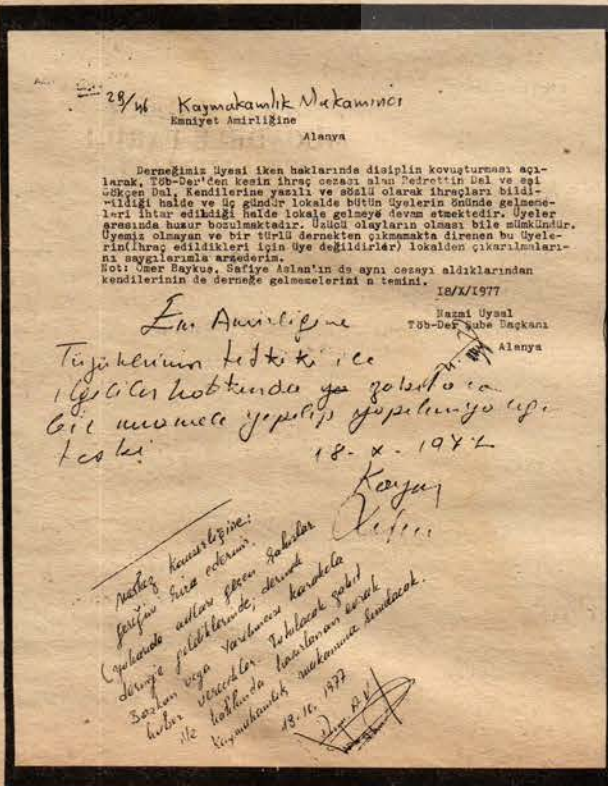 29/46 Kaymakamlık Makamına
Emniyet Amirliğine
Alanya
Derneğimiz üyesi iken haklarında disiplin kovuşturması açı-
larak, Töb-Der'den kesin ihraç cezası alan Bedrettin Dal ve eşi
Gökçen Dal, Kendilerine yazılı ve sözlü olarak ihraçları bildi-
rildiği halde ve üç gündür lokalde bütün üyelerin önünde gelmeme-
leri ihtar edildiği halde lokale gelmeye devam etmektedir. Üyeler
arasında huzur bozulmaktadır. Üzücü olayların olması bile mümkündür.
Üyemiz olmayan ve bir türlü dernekten çıkmamakta direnen bu üyele-
rin(İhraç edildikleri için üye değildirler) lokalden çıkarılmaları-
nı saygılarımla arzederim.
Not: Ömer Baykuş, Safiye Aslan'ın da aynı cezayı aldıklarından
kendilerinin de derneğe gelmemelerini n temini.
18/X/1977
Nazmi Uysal
Töb-Der Şube Başkanı
Alanya
Em Amirliğine
Tüzüklerinin tetkiki ile
ilgililer hakkında zabıtaca
bir muamele yapılıp yapılmıyacağı
18-X-1977
Merkez Komserliğine:
gereğini rica ederim.
(yukarıda adları geçen şahıslar
derneğe geldiklerinde, dernek
Başkan veya Yardımcısı karakola
haber verecekler. Tutulacak zabıt
ile haklarında hazırlanan evrak
Kaymakamlık makamına sunulacak.
18.10.1977